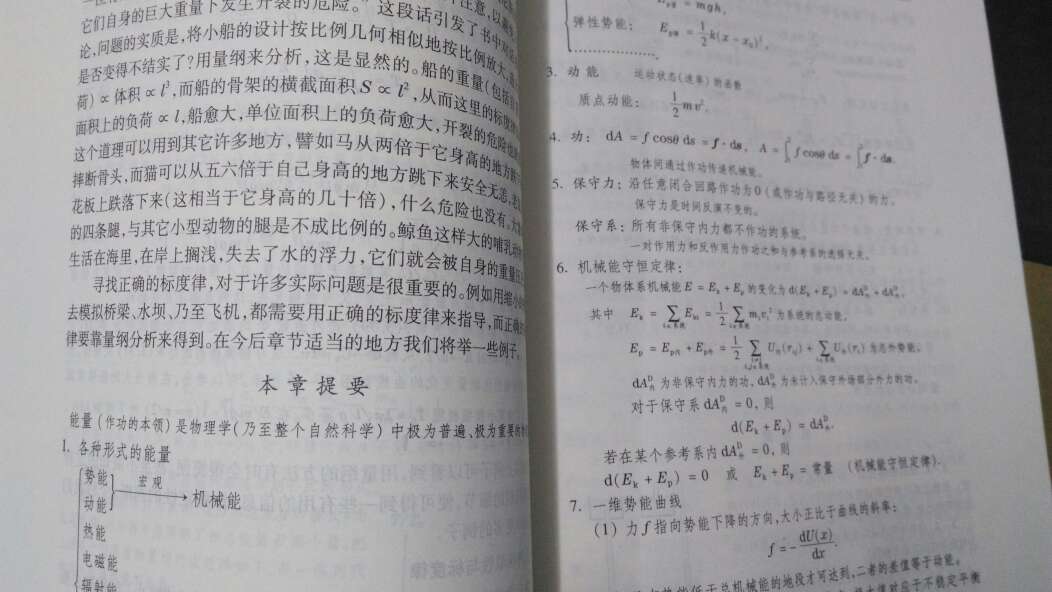 它们自身的巨大重量下发生开裂的危险。”这段话引发了书中对
论,问题的实质是,将小船的设计按比例几何相似地按比例放大,
是否变得不结实了?用量纲来分析，这是显然的。船的重量(包括
荷)∝体积∝l³,而船的骨架的横截面积S∝l²,从而这里的标度
面积上的负荷∝l,船愈大,单位面积上的负荷愈大,开裂的危险也
这个道理可以用到其它许多地方,譬如马从两倍于它身高的地方
摔断骨头,而猫可以从五六倍于自己身高的地方跳下来安全无恙,
花板上跌落下来(这相当于它身高的几十倍),什么危险也没有。
的四条腿,与其它小型动物的腿是不成比例的。鲸鱼这样大的哺乳动
生活在海里,在岸上搁浅,失去了水的浮力,它们就会被自身的重量
寻找正确的标度律,对于许多实际问题是很重要的。例如用缩小
去模拟桥梁、水坝、乃至飞机,都需要用正确的标度律来指导,而正确
律要靠量纲分析来得到。在今后章节适当的地方我们将举一些例子。
本章提要
能量(作功的本领)是物理学(乃至整个自然科学)中极为普遍、极为重要的
1. 各种形式的能量
势能
宏观
动能
机械能
热能
电磁能
辐射能
= mgh,
弹性势能: E = ½k(x-x₀)²,
……………
3. 动能 运动状态(速率)的函数
质点动能: ½mv².
4. 功: dA = f cosθ ds = f·ds, A = ∫ f cosθ ds = ∫ f·ds.
物体间通过作功传递机械能。
5. 保守力: 沿任意闭合回路作功为0(或作功与路径无关)的力。
保守力是时间反演不变的。
保守系: 所有非保守内力都不作功的系统。
一对作用力和反作用力作功之和与参考系的选择无关。
6. 机械能守恒定律:
一个物体系机械能 E = Eₖ + Eₚ 的变化为 d(Eₖ + Eₚ) = dA内ᴰ + dA外ᴰ,
其中 Eₖ = ∑ Eₖᵢ = ½ ∑ mᵢvᵢ² 为系统的总动能,
Eₚ = Eₚ内 + Eₚ外 = ½ ∑ U内(rᵢⱼ) + ∑ U外(rᵢ) 为总外势能,
dA内ᴰ 为非保守内力的功, dA外ᴰ 为未计入保守外场部分外力的功。
对于保守系 dA内ᴰ = 0, 则
d(Eₖ + Eₚ) = dA外ᴰ.
若在某个参考系内 dA外ᴰ = 0, 则
d(Eₖ + Eₚ) = 0 或 Eₖ + Eₚ = 常量 (机械能守恒定律).
7. 一维势能曲线
(1) 力f指向势能下降的方向,大小正比于曲线的斜率:
f = - dU(x)/dx.
势能低于总机械能的地段才可达到,二者的差值等于动能。
对应于不稳定平衡